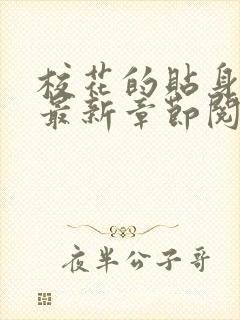 校花的贴身
最新章节阅
夜半公子哥